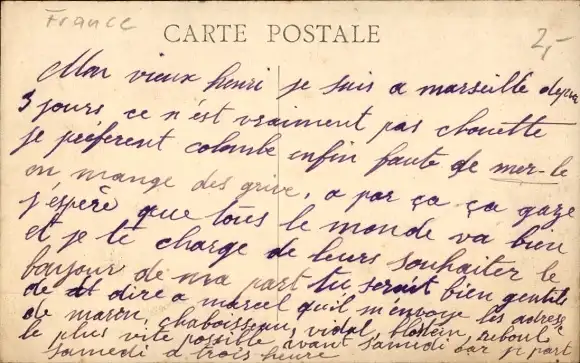 France
2,-
CARTE POSTALE
Mon vieux henri je suis a marseille depuis
3 jours ce n'est vraiment pas chouette
je préferent colombe enfin faute de mer-le
on mange des grive, a par ça ça gaze
j'espère que tous le monde va bien
et je te charge de leurs souhaiter le
bonjour de ma part tu serait bien gentils
de dire a marcel qu'il m'envoye les adresse
de maron, chaboisseau, vidal, reboul
le plus vite possible avant samedi car je part
samedi a trois heure